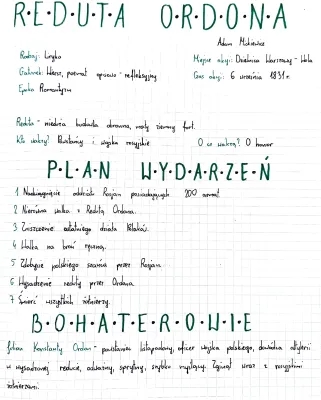 R·E·D·U·T·A O·R·D·O·N·A
Adam Mickiewicz
Rodzaj: Liryka
Miejsce akcji: Dzielnica Warszawy - Wola
Gatunek: Wiersz, poemat opisowo - refleksyjny
Czas akcji: 6 września 1831 r.
Epoka Romantyzm
Reduta - niewielka budowla obronna, mały ziemny fort.
Kto walczy? Powstańcy i wojsko rosyjskie
O co walczą? O honor
P·L·A·N W·Y·D·A·R·Z·E·Ń
1 Nadciągnięcie oddziału Rosjan posiadających 200 armat
2 Nierówna walka z Redutą Ordona.
3 Zniszczenie ostatniego działa Polaków.
4 Walka na broń ręczną.
5 Zdobycie polskiego szańca przez Rosjan
6 Wysadzenie reduty przez Ordona.
7 Śmierć wszystkich żołnierzy.
B·O·H·A·T·E·R·O·W·I·E
Julian Konstanty Ordon - powstaniec listopadowy, oficer wojska polskiego, dowódca artylerii
w wysadzonej reducie, odważny, sprytny, szybko myślący. Zginął wraz z rosyjskimi
żołnierzami.